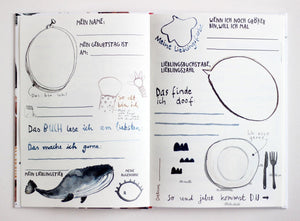 MEIN NAME:
MEIN GEBURTSTAG IST
AM:
Das bin ich!
So
bin ich
Das BUCH lese ich am liebsten:
Das mache ich gerne:
MEIN LIEBLINGSTIER
WENN ICH NOCH GRÖßER
BIN, WILL ICH MAL
Meine Lieblingsfarbe
LIEBLINGSBUCHSTABE,
LIEBLINGSZAHL
Das finde
ich doof:
So und jetzt kommst DU →